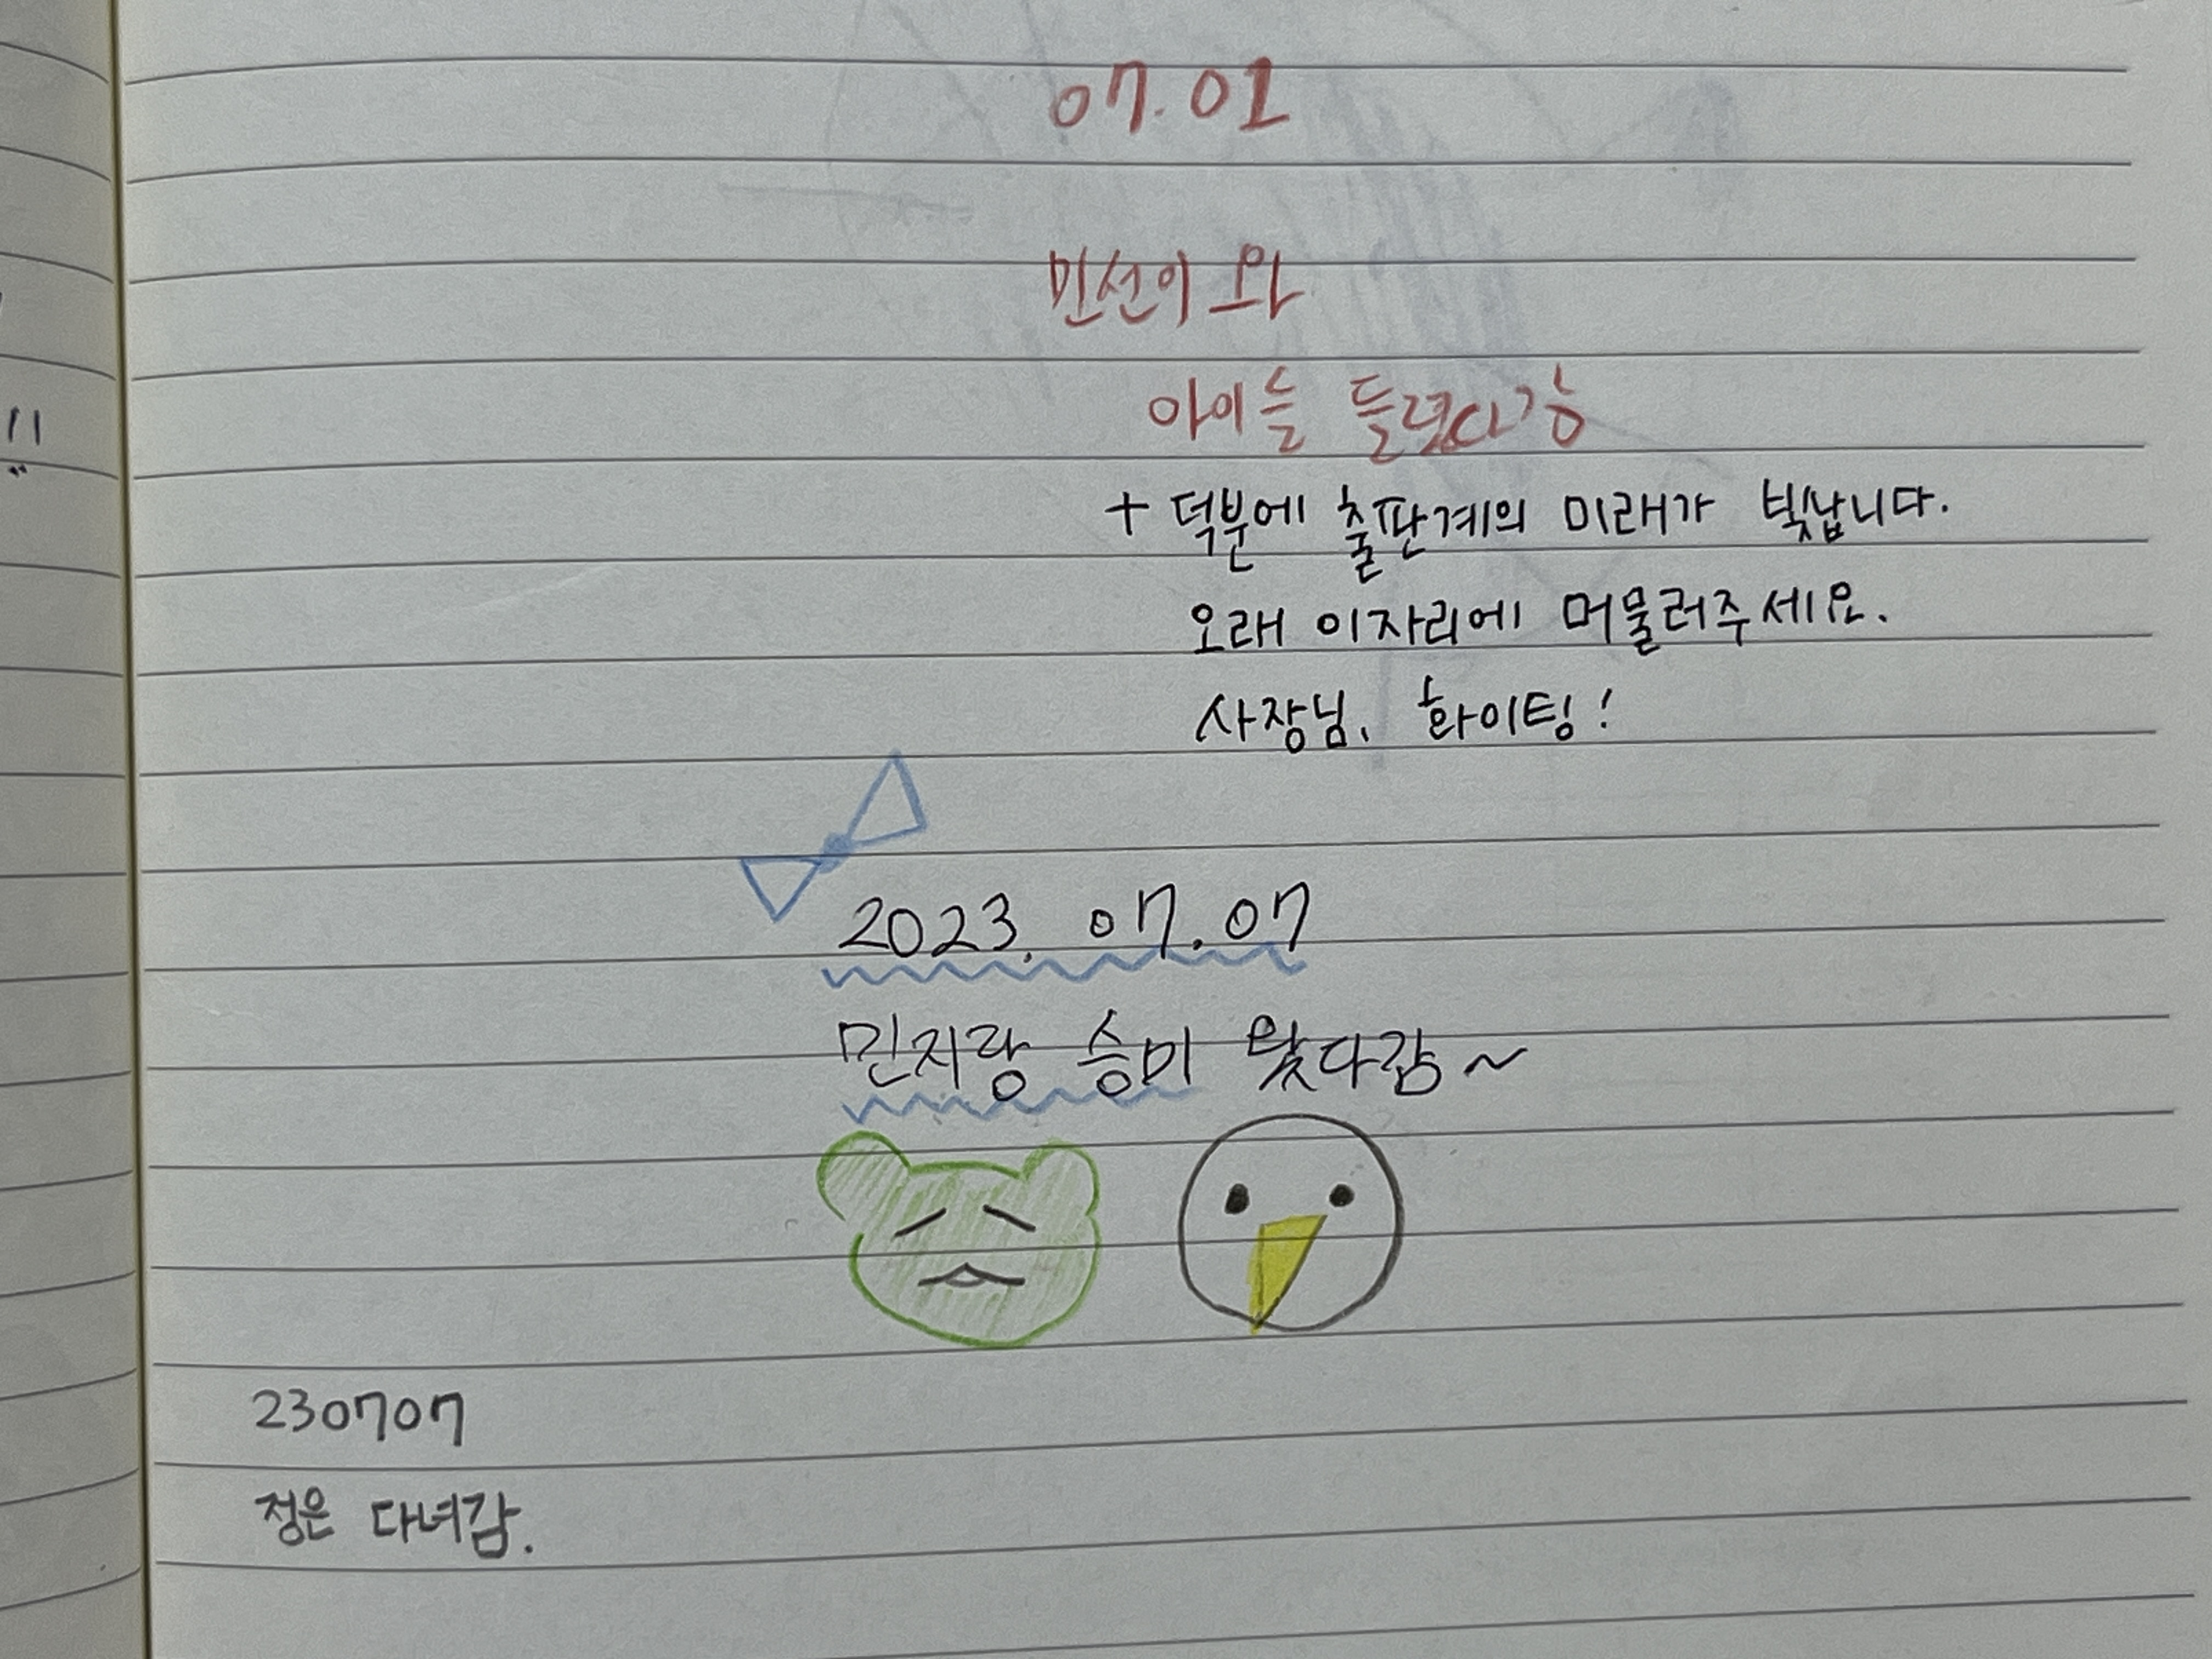 07.01
민선이와
아이들 들렸다강
+ 덕분에 출판계의 미래가 빛납니다.
오래 이자리에 머물러주세요.
사장님, 화이팅!
2023. 07.07
민지랑 승미 왔다감~
230707
정은 다녀감.